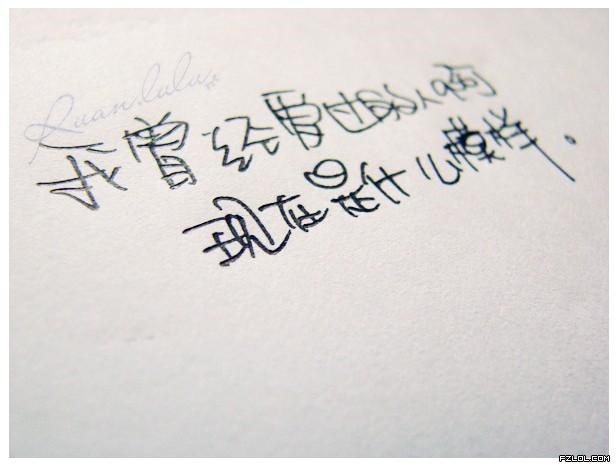 Ruan.lulu
我曾经爱过的人啊
现在是什么模样.
PZLOL.COM